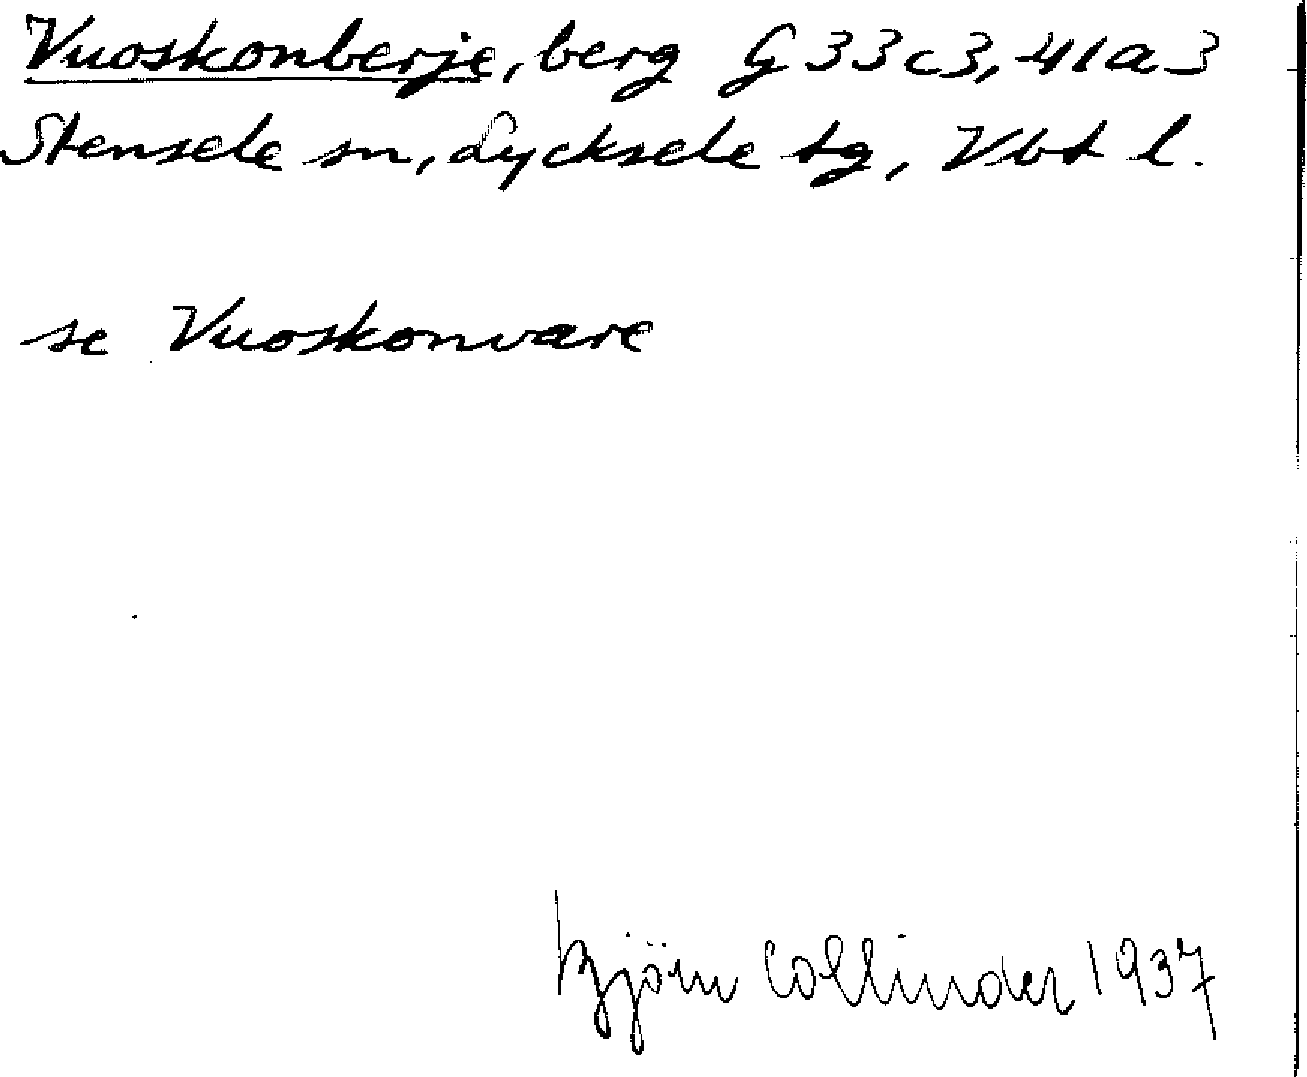 Vuoskonberje, berg G 33c3, 41a3
Stensele sn, Lycksele tg, Vbt l.
se Vuoskonvare
Björn Collinder 1937